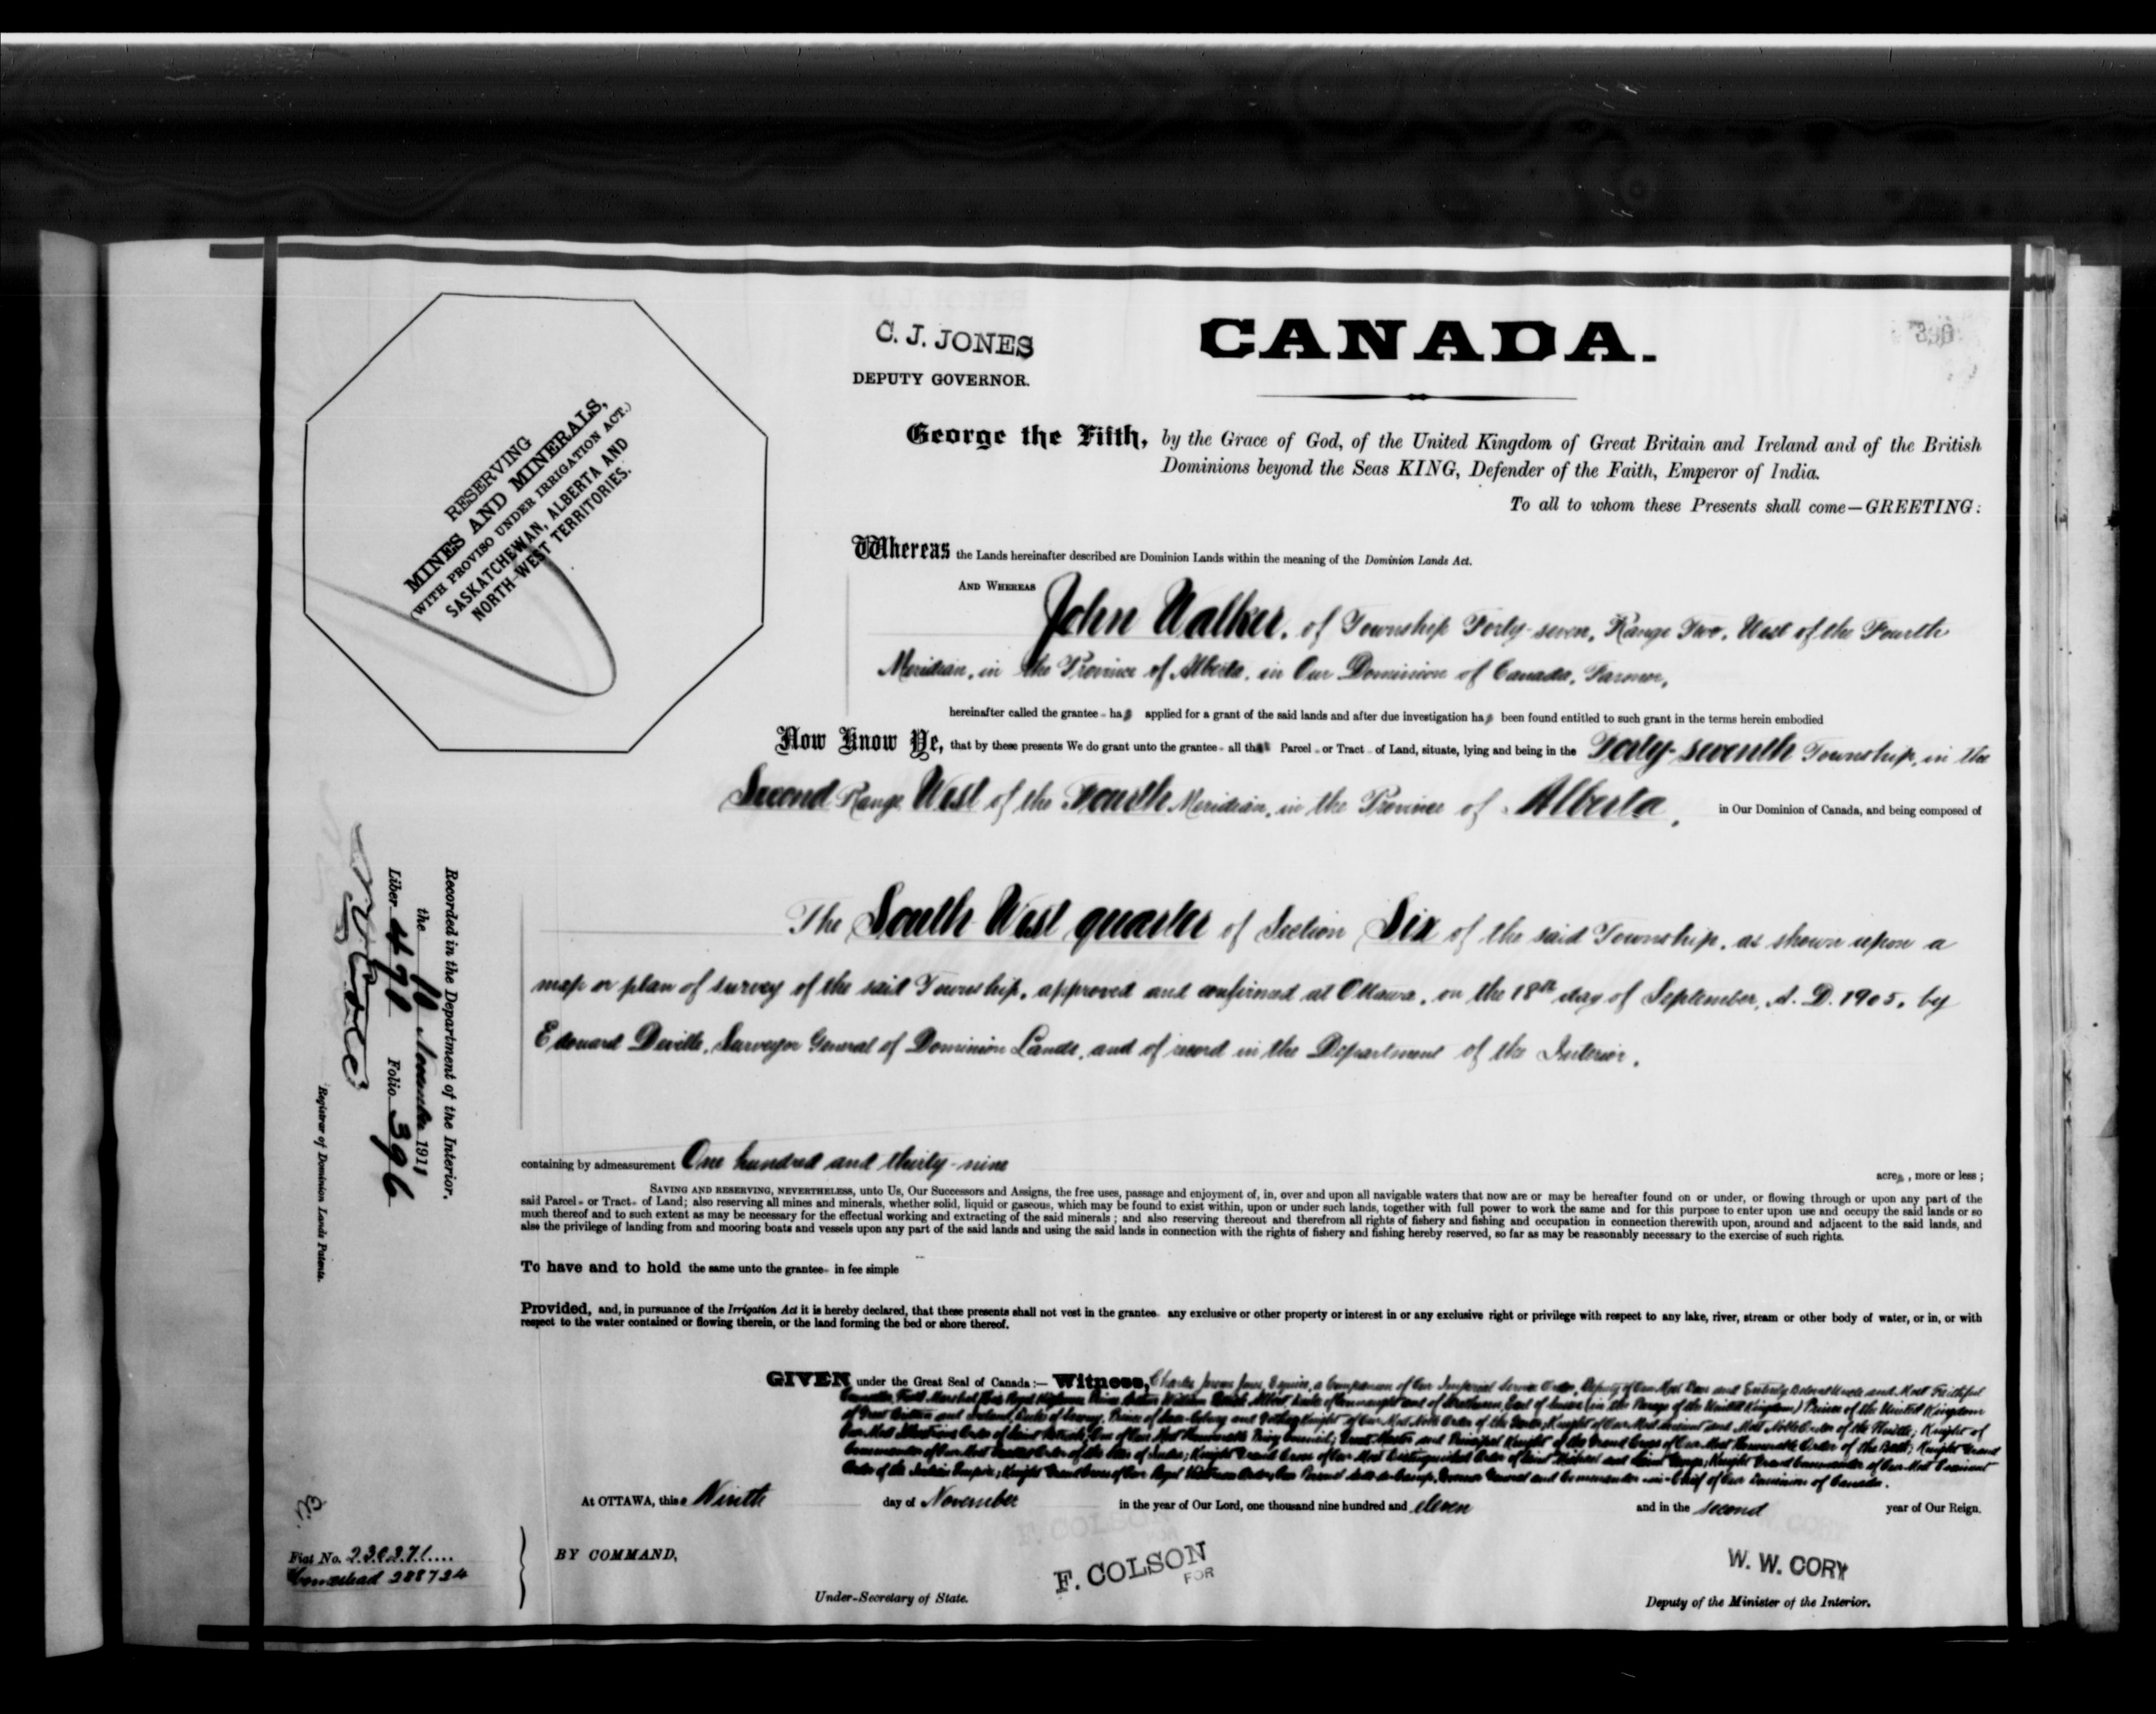 C. J. JONES
DEPUTY GOVERNOR.
CANADA.
396
RESERVING
MINES AND MINERALS,
(WITH PROVISO UNDER IRRIGATION ACT.)
SASKATCHEWAN, ALBERTA AND
NORTH-WEST TERRITORIES.
George the Fifth, by the Grace of God, of the United Kingdom of Great Britain and Ireland and of the British
Dominions beyond the Seas KING, Defender of the Faith, Emperor of India.
To all to whom these Presents shall come—GREETING:
Whereas the Lands hereinafter described are Dominion Lands within the meaning of the Dominion Lands Act.
AND WHEREAS John Walker, of Township Forty-seven, Range Two, West of the Fourth
Meridian, in the Province of Alberta, in Our Dominion of Canada, Farmer,
hereinafter called the grantee - has applied for a grant of the said lands and after due investigation has been found entitled to such grant in the terms herein embodied
Now Know Ye, that by these presents We do grant unto the grantee - all that Parcel - or Tract - of Land, situate, lying and being in the Forty-seventh Township, in the
Second Range West of the Fourth Meridian, in the Province of Alberta, in Our Dominion of Canada, and being composed of
The South West quarter of Section Six of the said Township, as shown upon a
map or plan of survey of the said Township, approved and confirmed at Ottawa, on the 18th day of September, A. D. 1905, by
Edouard Deville, Surveyor General of Dominion Lands, and of record in the Department of the Interior.
containing by admeasurement One hundred and thirty-nine acres, more or less;
SAVING AND RESERVING, NEVERTHELESS, unto Us, Our Successors and Assigns, the free uses, passage and enjoyment of, in, over and upon all navigable waters that now are or may be hereafter found on or under, or flowing through or upon any part of the
said Parcel - or Tract - of Land; also reserving all mines and minerals, whether solid, liquid or gaseous, which may be found to exist within, upon or under such lands, together with full power to work the same and for this purpose to enter upon use and occupy the said lands or so
much thereof and to such extent as may be necessary for the effectual working and extracting of the said minerals; and also reserving thereout and therefrom all rights of fishery and fishing and occupation in connection therewith upon, around and adjacent to the said lands, and
also the privilege of landing from and mooring boats and vessels upon any part of the said lands and using the said lands in connection with the rights of fishery and fishing hereby reserved, so far as may be reasonably necessary to the exercise of such rights.
To have and to hold the same unto the grantee - in fee simple
Provided, and, in pursuance of the Irrigation Act it is hereby declared, that these presents shall not vest in the grantee - any exclusive or other property or interest in or any exclusive right or privilege with respect to any lake, river, stream or other body of water, or in, or with
respect to the water contained or flowing therein, or the land forming the bed or shore thereof.
GIVEN under the Great Seal of Canada:— Witness, Charles Jones Esquire, a Companion of Our Imperial Service Order, Deputy of Our Most Dear and Entirely Beloved Uncle and Most Faithful
Counsellor, Field Marshal His Royal Highness Prince Arthur William Patrick Albert, Duke of Connaught and of Strathearn, Earl of Sussex (in the Peerage of the United Kingdom) Prince of the United Kingdom
of Great Britain and Ireland, Duke of Saxony, Prince of Saxe-Coburg and Gotha; Knight of Our Most Noble Order of the Garter; Knight of Our Most Ancient and Most Noble Order of the Thistle; Knight of
Our Most Illustrious Order of Saint Patrick; One of Our Most Honourable Privy Council; Great Master and Principal Knight of the Grand Cross of Our Most Honourable Order of the Bath; Knight Grand
Commander of Our Most Exalted Order of the Star of India; Knight Grand Cross of Our Most Distinguished Order of Saint Michael and Saint George; Knight Grand Commander of Our Most Eminent
Order of the Indian Empire; Knight Grand Cross of Our Royal Victorian Order; Our Personal Aide-de-Camp, Governor General and Commander-in-Chief of Our Dominion of Canada.
At OTTAWA, this Ninth day of November in the year of Our Lord, one thousand nine hundred and eleven and in the second year of Our Reign.
BY COMMAND,
F. COLSON
FOR
Under-Secretary of State.
W. W. CORY
Deputy of the Minister of the Interior.
Recorded in the Department of the Interior,
the November 1911
Liber 470 Folio 396
Registrar of Dominion Lands Patents.
Fiat No. 230271....
Homestead 288724